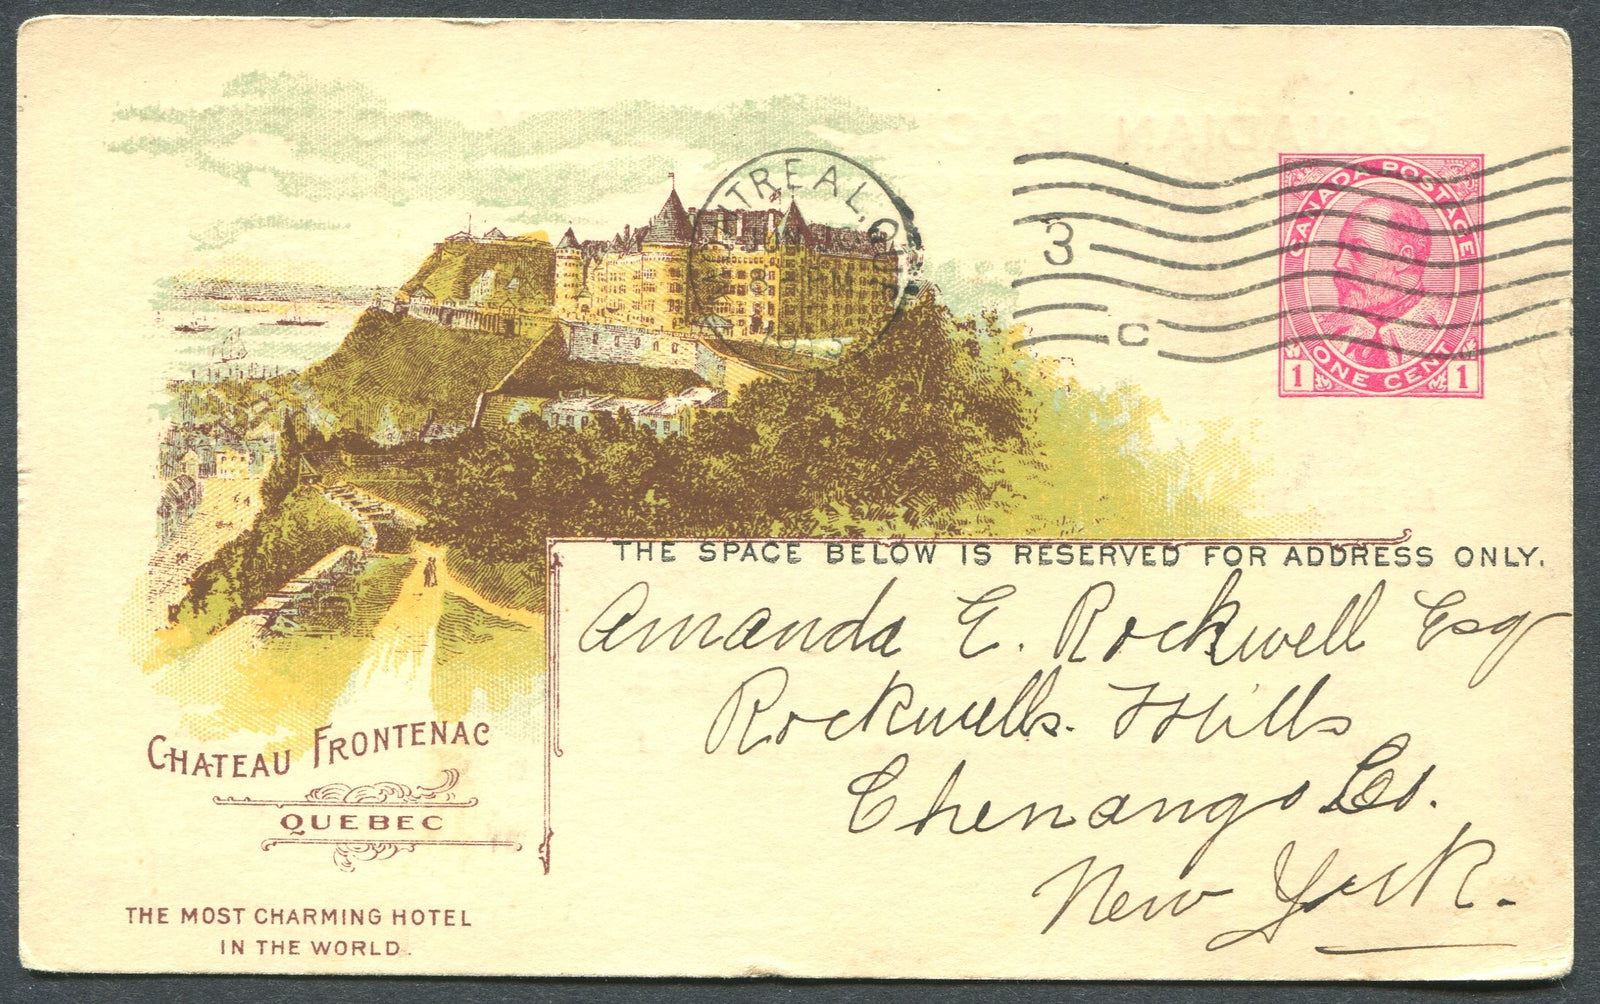 CANADIAN PAC
MONTREAL, QUE.
3
C
CANADA POSTAGE
ONE CENT
1 1
THE SPACE BELOW IS RESERVED FOR ADDRESS ONLY.
Amanda E. Rockwell Esq
Rockwells. Mills
Chenango Co.
New York.
CHATEAU FRONTENAC
QUEBEC
THE MOST CHARMING HOTEL
IN THE WORLD.